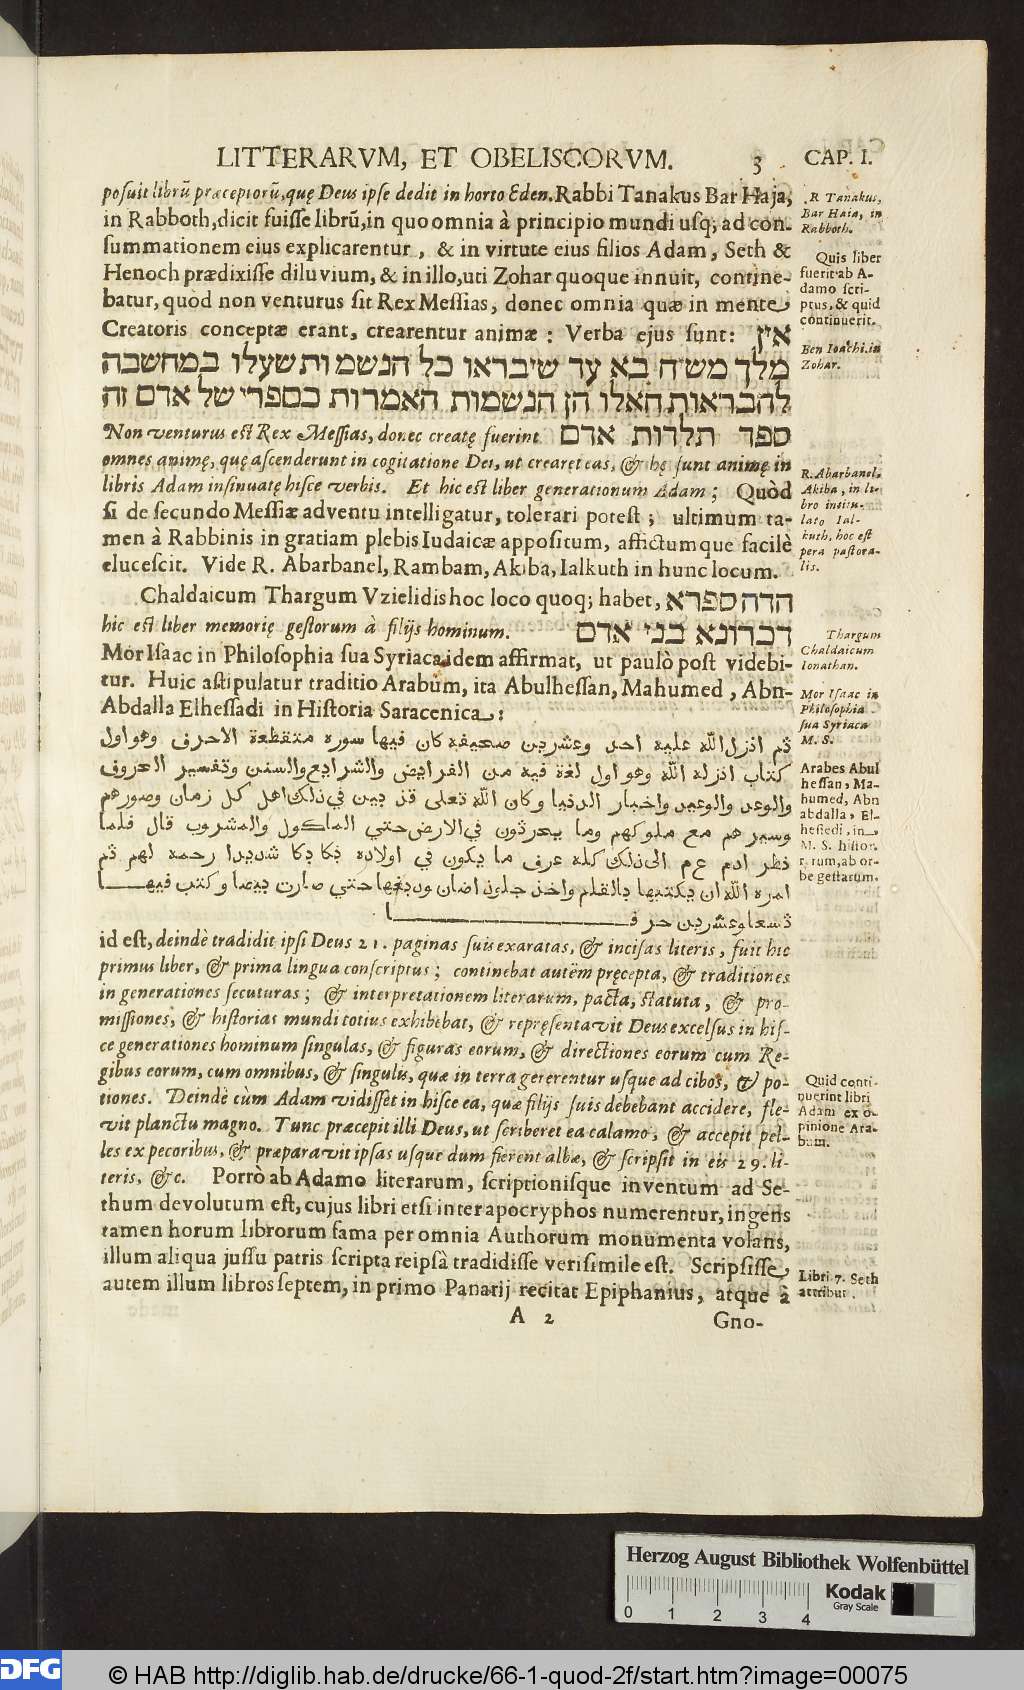 LITTERARVM, ET OBELISCORVM. 3 CAP. I.
posuit librũ præceptorũ, quę Deus ipse dedit in horto Eden. Rabbi Tanakus Bar Haja,
in Rabboth, dicit fuisse librũ, in quo omnia à principio mundi usq; ad con-
summationem eius explicarentur, & in virtute eius filios Adam, Seth &
Henoch prædixisse diluvium, & in illo, uti Zohar quoque innuit, contine-
batur, quòd non venturus sit Rex Messias, donec omnia quæ in mente
Creatoris conceptæ erant, crearentur animæ: Verba ejus sunt: אין
מלך משיח בא עד שיבראו כל הנשמות שעלו במחשבה
להבראות האלו הן הנשמות האמרות בספרי של אדם זה
ספר תלדות אדם Non venturus est Rex Messias, donec creatę fuerint
omnes animę, quę ascenderunt in cogitatione Dei, ut crearet eas, & hę sunt animę in
libris Adam insinuatę hisce verbis. Et hic est liber generationum Adam; Quòd
si de secundo Messiæ adventu intelligatur, tolerari potest; ultimum ta-
men à Rabbinis in gratiam plebis Iudaicæ appositum, affictumque facilè
elucescit. Vide R. Abarbanel, Rambam, Akiba, Ialkuth in hunc locum.
Chaldaicum Thargum Vzielidis hoc loco quoq; habet, הדה ספרא
דכרונא בני אדם hic est liber memorię gestorum à filijs hominum.
Mor Isaac in Philosophia sua Syriaca idem affirmat, ut paulò post videbi-
tur. Huic astipulatur traditio Arabum, ita Abulhessan, Mahumed, Abn-
Abdalla Elhessadi in Historia Saracenica:
ثم انزل الله عليه احد وعشرين صحيفه كان فيها سوره متقطعة الاحرف وهو اول
كتاب انزله الله وهو اول لغة فيه من الفرايض والشرايع والسنن وتفسير الحروف
والوعد والوعيد واخبار الدنيا وكان الله تعلى قد بين في ذلك اهل كل زمان وصورهم
وسيرهم مع ملوكهم وما يحدثون في الارض حتي الماكول والمشروب قال فلما
نظر ادم ع م الى ذلك كله عرف ما يكون في اولاده بكا بكا شديدا رحمه لهم ثم
امره الله ان يكتبها بالقلم واخذ جلود اضان ودبغها حتي صارت بيضا وكتب فيها
تسعا وعشرين حرفا
id est, deindè tradidit ipsi Deus 21. paginas suis exaratas, & incisas literis, fuit hic
primus liber, & prima lingua conscriptus; continebat autem pręcepta, & traditiones
in generationes secuturas; & interpretationem literarum, pacta, statuta, & pro-
missiones, & historias mundi totius exhibebat, & repręsentavit Deus excelsus in his-
ce generationes hominum singulas, & figuras eorum, & directiones eorum cum Re-
gibus eorum, cum omnibus, & singulis, quæ in terra gererentur usque ad cibos, & po-
tiones. Deindè cùm Adam vidisset in hisce ea, quæ filijs suis debebant accidere, fle-
vit planctu magno. Tunc præcepit illi Deus, ut scriberet ea calamo, & accepit pel-
les ex pecoribus, & præparavit ipsas usque dum fierent albæ, & scripsit in eis 29. li-
teris, &c. Porrò ab Adamo literarum, scriptionisque inventum ad Se-
thum devolutum est, cujus libri etsi inter apocryphos numerentur, ingens
tamen horum librorum fama per omnia Authorum monumenta volans,
illum aliqua jussu patris scripta reipsà tradidisse verisimile est. Scripsisse
autem illum libros septem, in primo Panarij recitat Epiphanius, atque à
A 2 Gno-
R Tanakus,
Bar Haia, in
Rabboth.
Quis liber
fuerit ab A-
damo scri-
ptus, & quid
continuerit.
Ben Ioachi. in
Zohar.
R. Abarbanel,
Akiba, in li-
bro intitu-
lato Ial-
kuth, hoc est
pera pastora-
lis.
Thargum
Chaldaicum
Ionathan.
Mor Isaac in
Philosophia
sua Syriaca
M. S.
Arabes Abul
hessan, Ma-
humed, Abn
abdalla, El-
hessedi, in
M. S. histor.
r. rum, ab or-
be gestarum.
Quid conti-
nuerint libri
Adam ex o-
pinione Ara-
bum.
Libri 7. Seth
attribut.
Herzog August Bibliothek Wolfenbüttel
Kodak
Gray Scale
0 1 2 3 4
DFG © HAB http://diglib.hab.de/drucke/66-1-quod-2f/start.htm?image=00075